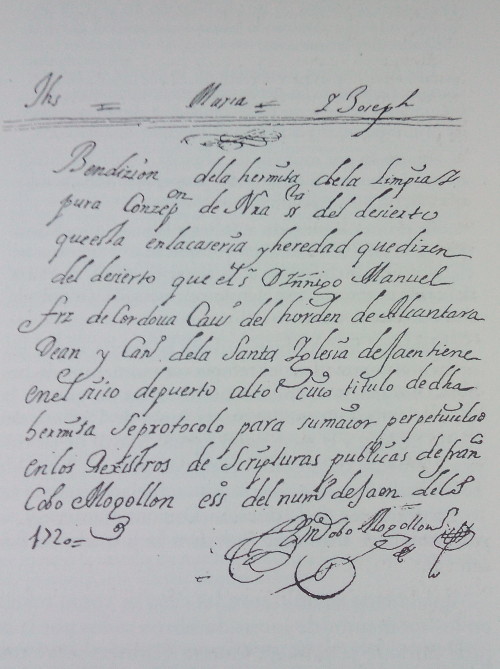 Jhs = Maria = Y Joseph
Bendizion dela hermita dela Limpia Y
pura Conzepon de Nra sra del desierto
que esta en la caseria y heredad que dizen
del desierto que el sr D Yñigo Manuel
frz de Cordoua Cauo del horden de Alcantara
Dean y Cano dela Santa Yglesia de Jaen tiene
en el sitio de puerto alto cuio titulo de dha
hermita Se protocolo para su maior perpetuidad
en los Rexistros de Scripturas publicas de franco
Cobo Mogollon esso del numo de Jaen
1720=
Cobo Mogollon